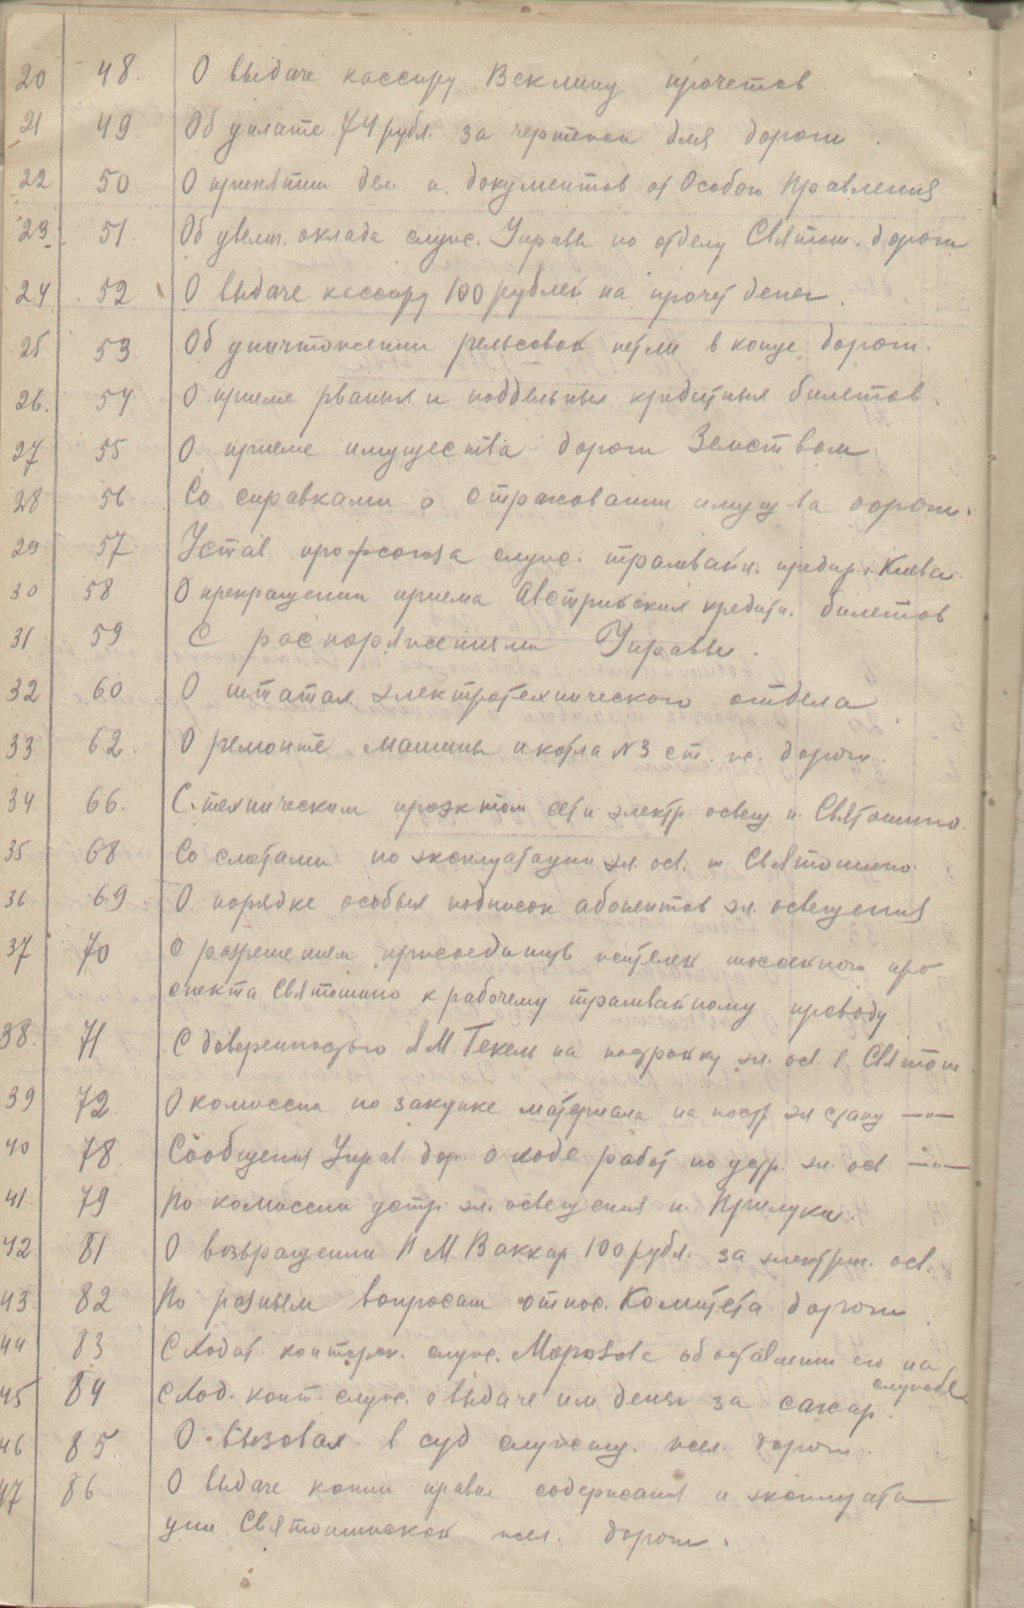 20 48. О выдаче кассиру Веклину прочетов
21 49 Об уплате 74 рубл. за чертежи для дороги.
22 50 О принятии дел и документов от Особого Правления
23. 51. Об увелич. оклада служ. Управы по отделу Святош. дороги
24 52 О выдаче кассиру 100 рублей на прочет денег.
25 53. Об уничтожении рельсовой петли в конце дороги.
26. 54 О приеме рваных и поддельных кредитных билетов.
27 55 О приеме имущества дороги Земством
28 56 Со справками о страховании имущ ва дороги.
29 57 Устав профсоюза служ. трамвайн. предпр. Киева
30 58 О прекращении приема Австрийских кредитн. билетов
31 59 С распоряжениями Управы.
32 60 О штатах электротехнического отдела
33 62. О ремонте машины и котла №3 ст. ж. дороги.
34 66. С техническим проэктом сети электр. освещ. п. Святошино
35 68 Со сметами по эксплуатации эл. осв. п. Святошино
36 69 О порядке особых подписок абонентов эл. освещения
37 70 С разрешением присоединить шоссейного про
спекта Святошино к рабочему трамвайному проводу
38. 71 С доверенностью на постройку эл. осв. в Святош
39 72 О комиссии по закупке материала на постр. эл станц —"—
40 78 Сообщения Управ. дор. о ходе работ по устр. эл. осв —"—
41 79 По комиссии устр. эл. освещения п. Прилуки.
42 81 О возвращении М. Ваккар 100 рубл. за электрич. осв.
43 82 По разным вопросам относ. Комитета дороги
44 83 С ходат. контрол. служ. Морозова об оставлении его на
службе
45 84 С ход. конт. служ. о выдаче им денег за сахар.
46 85. О вызовах в суд служащ. жел. дороги.
47 86 О выдаче копии правил содержания и эксплуата
ции Святошинской жел. дороги.